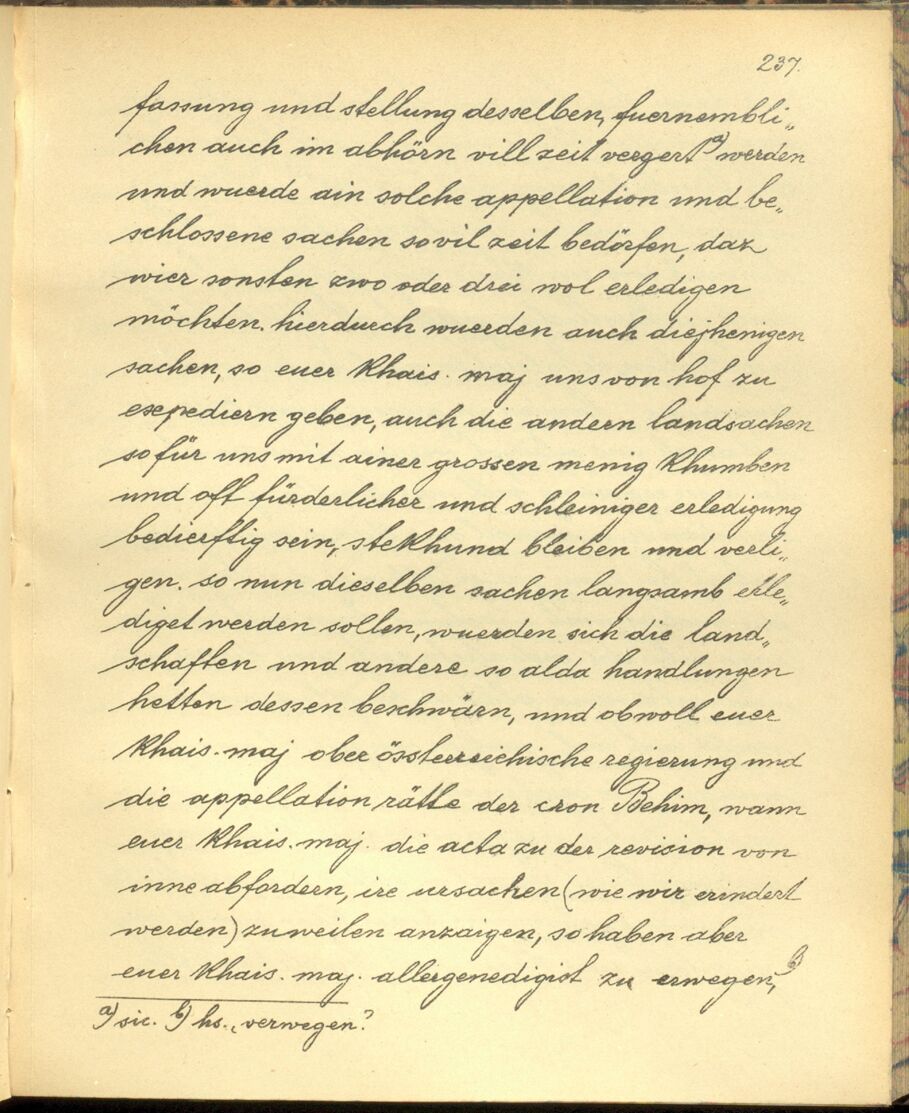 237.
fassung und stellung desselben, fuernembli„
chen auch im abhörn vill zeit vergert a) werden
und wuerde ain solche appellation und be„
schlossene sachen sovil zeit bedörfen, daz
wier sonsten zwo oder drei wol erledigen
möchten. hierdurch wuerden auch diejhenigen
sachen, so euer Khais. maj uns von hof zu
expediern geben, auch die andern landsachen
so für uns mit ainer grossen menig Khumben
und oft fürderlicher und schleiniger erledigung
bedierftig sein, stekhund bleiben und verli„
gen. so nun dieselben sachen langsamb erle„
diget werden sollen, wuerden sich die land„
schaften und andere so alda handlungen
hetten dessen beschwärn, und obwoll euer
Khais. maj ober össterreichische regierung und
die appellation rätte der cron Behim, wann
euer Khais. maj. die acta zu der revision von
inne abfordern, ire ursachen (wie wir erindert
werden) zuweilen anzaigen, so haben aber
euer Khais. maj. allergenedigist zu erwegen, b)
a) sic. b) hs. „verwegen?